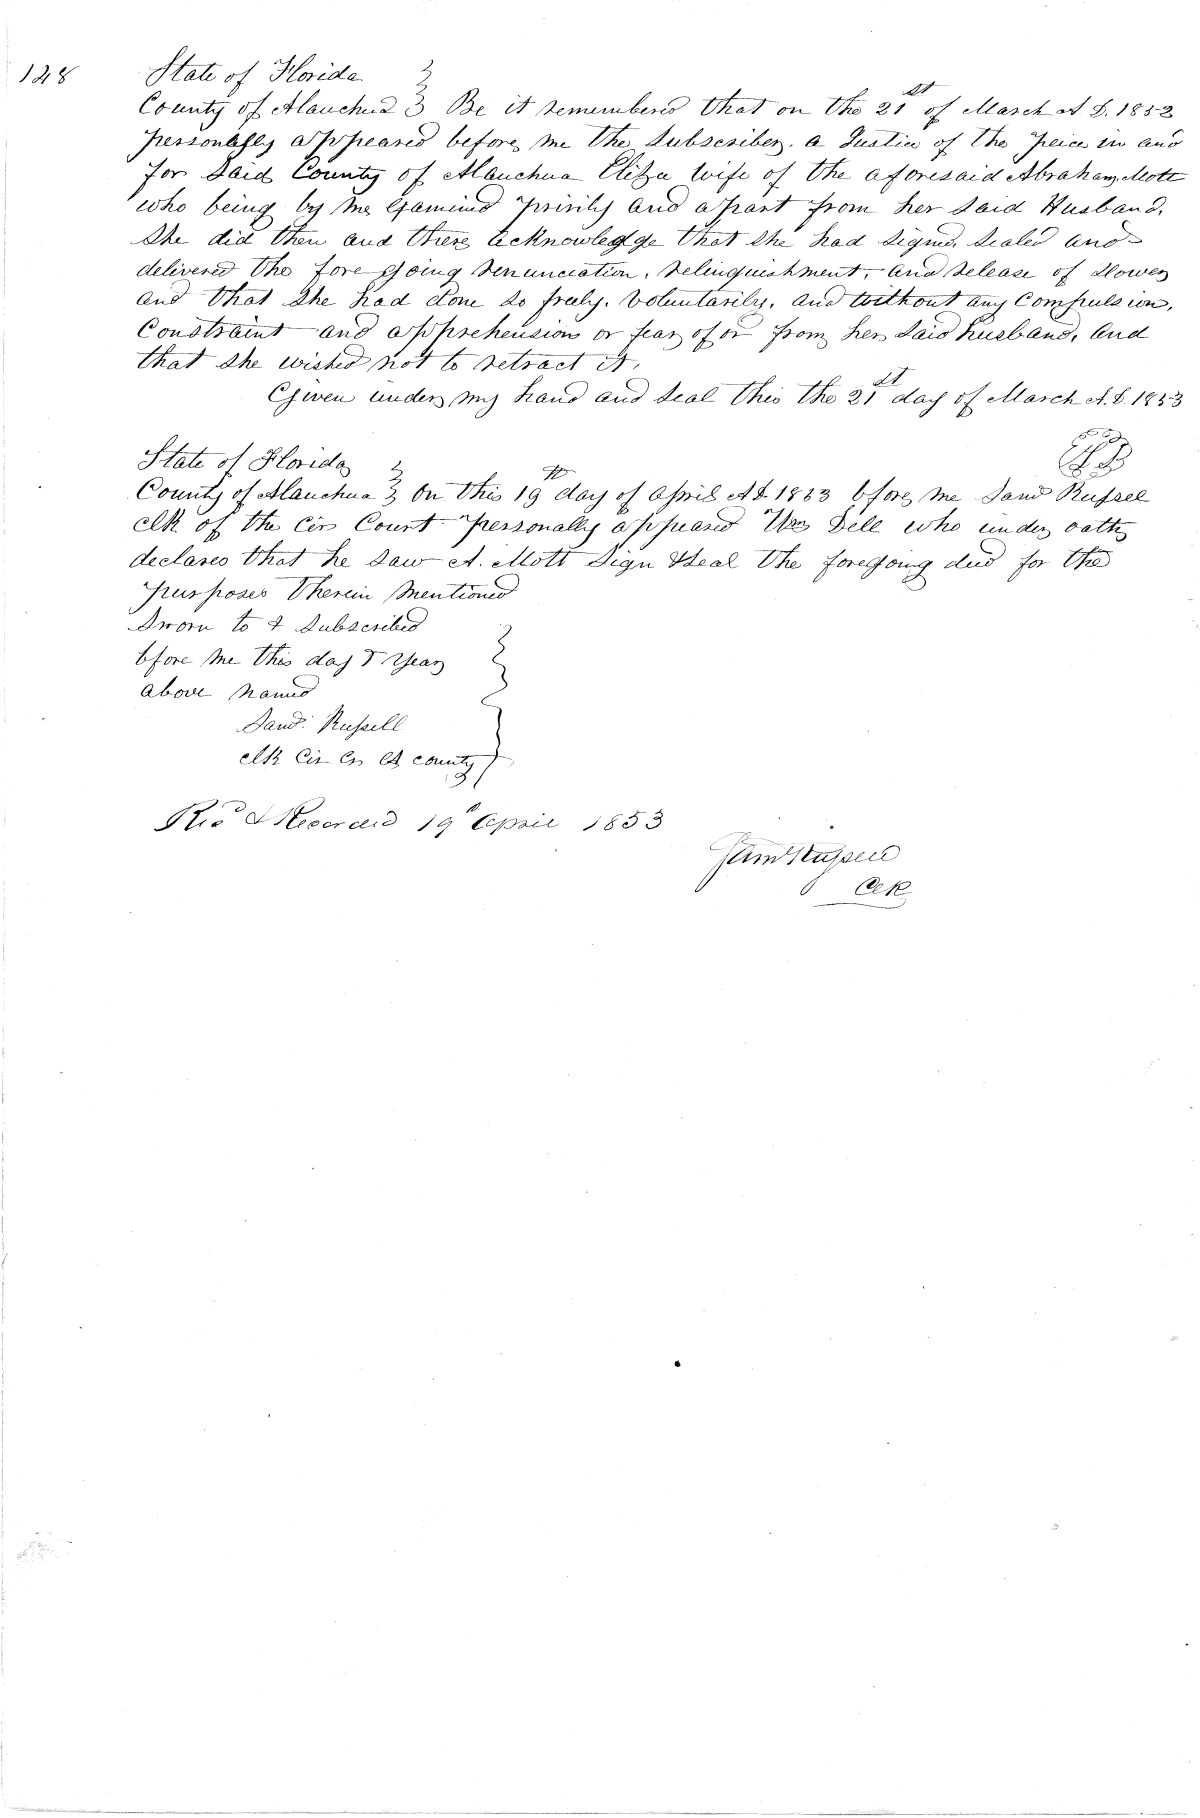 128
State of Florida
County of Alauchua } Be it remembered that on the 21st of March A D. 1853
personally appeared before me the Subscriber, a Justice of the peice in and
for Said County of Alauchua Eliza wife of the aforesaid Abraham Mott
who being by me Examined privily and apart from her Said Husband,
She did then and there acknowledge that She had Signed, Sealed and
delivered the fore going renunciation, relinquishment, and release of Dower
and that She had done So freely, Voluntarily, and without any Compulsion,
Constraint and apprehension or fear of or from her Said husband, and
that She wished not to retract it,
Given under my hand and Seal this the 21st day of March A.D. 1853
State of Florida
County of Alauchua } On this 19th day of April A D 1853 bfore me Saml Russel
clk of the Cir Court personally appeared Wm Dell who under oath
declares that he Saw A. Mott Sign & Seal the foregoing deed for the
purposes therein mentioned
Sworn to & Subscribed
bfore me this day & Year
above named
Saml. Russell
clk Cir Co A county
Recd & Recorded 19th April 1853
Saml Russell
Clk